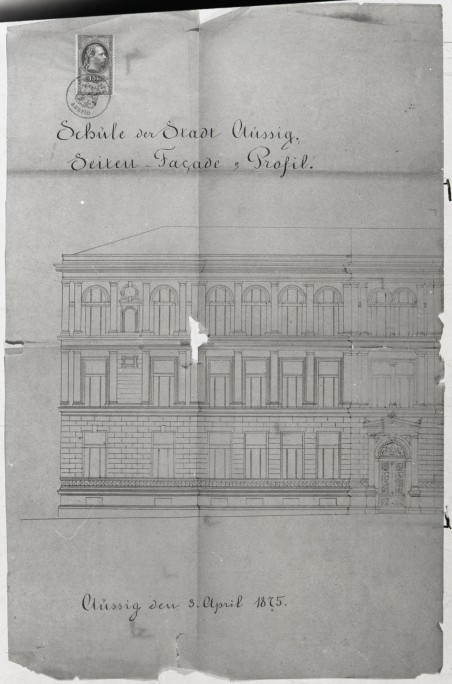 Schule der Stadt Aussig,
Seiten-Façade & Profil.
Aussig den 3. April 1875.